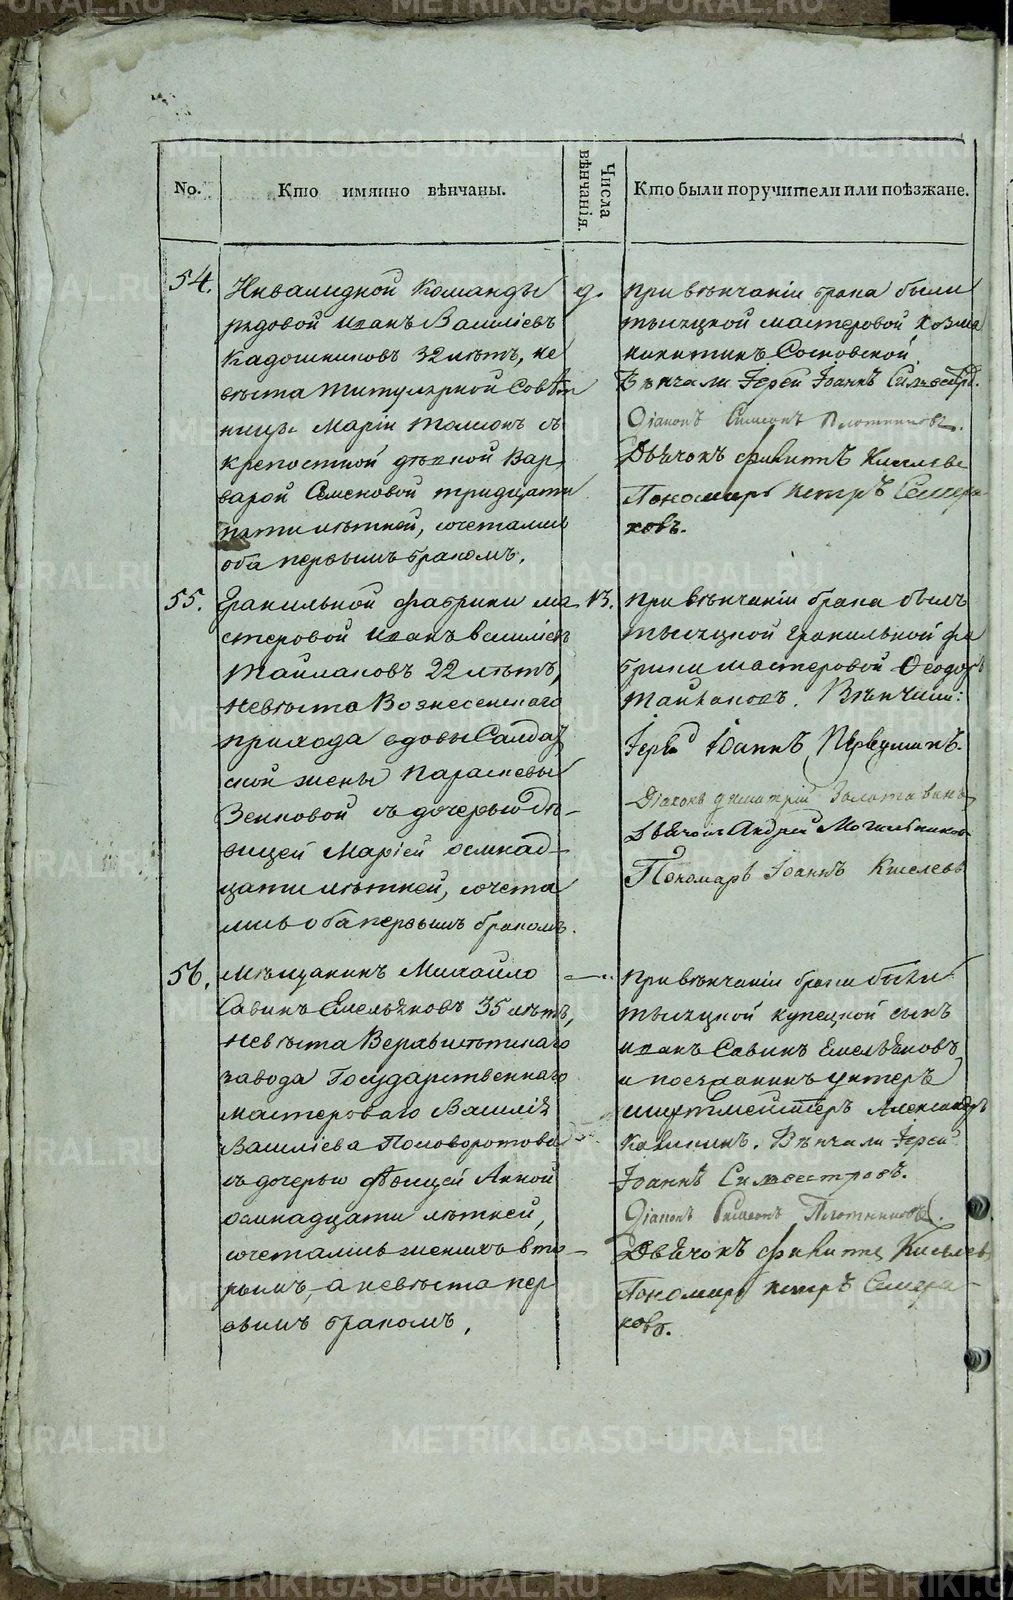 No.
Кто имянно вѣнчаны.
Числа вѣнчанія.
Кто были поручители или поѣзжане.
54.
Инвалидной Команды
рядовой иванъ Василіевъ
Кадошниковъ 32 лѣтъ, не
вѣста титулярной Совѣт
ницы Маріи Томсонъ съ
крепостной девкой Вар
варой Семеновой тридцати
пяти лѣтней, сочетались
оба первымъ бракомъ.
9.
при вѣнчаніи брака были
мастеровой козма
никитинъ Сосновской.
Вѣнчали Іерей Іоаннъ Сильвестр.
Діаконъ Симеонъ Плотниковъ.
Дьячокъ филитъ Киселевъ
Пономарь петръ Семери
ковъ.
55.
Гранильной фабрики ма
стеровой иванъ василіевъ
Таилаковъ 22 лѣтъ,
невѣста Вознесенскаго
прихода вдовы Салдат
ской жены парасковьи
Зенковой съ дочерью дѣ-
вицей Маріей осмнад-
цати лѣтней, сочета
лись оба первымъ бракомъ.
13.
при вѣнчаніи брака былъ
гранильной фа
брики мастеровой Ѳеодоръ
Вѣнчали:
Іерей Іоаннъ Первушинъ.
Діаконъ димитрій Золотавинъ
Дьячокъ Андрей Могильников
Пономарь Іоаннъ Киселевъ
56.
Мѣщанинъ Михайло
Савинъ Емельяновъ 35 лѣтъ,
невѣста Верхъисетскаго
завода Государственнаго
мастероваго Василія
Василіева Половоротова
съ дочерью дѣвицей Анной
осмнадцати лѣтней,
сочетались женихъ вто-
рымъ, а невѣста пер
вымъ бракомъ.
при вѣнчаніи брака были
купецкой сынъ
иванъ Савинъ Емельяновъ
и унтеръ
шихтмейстеръ Александръ
Калининъ. Вѣнчали Іерей
Іоаннъ Сильвестровъ.
Діаконъ Симеонъ Плотниковъ.
Дьячокъ филитъ Киселевъ
Пономарь петръ Семери-
ковъ.
METRIKI.GASO-URAL.RU